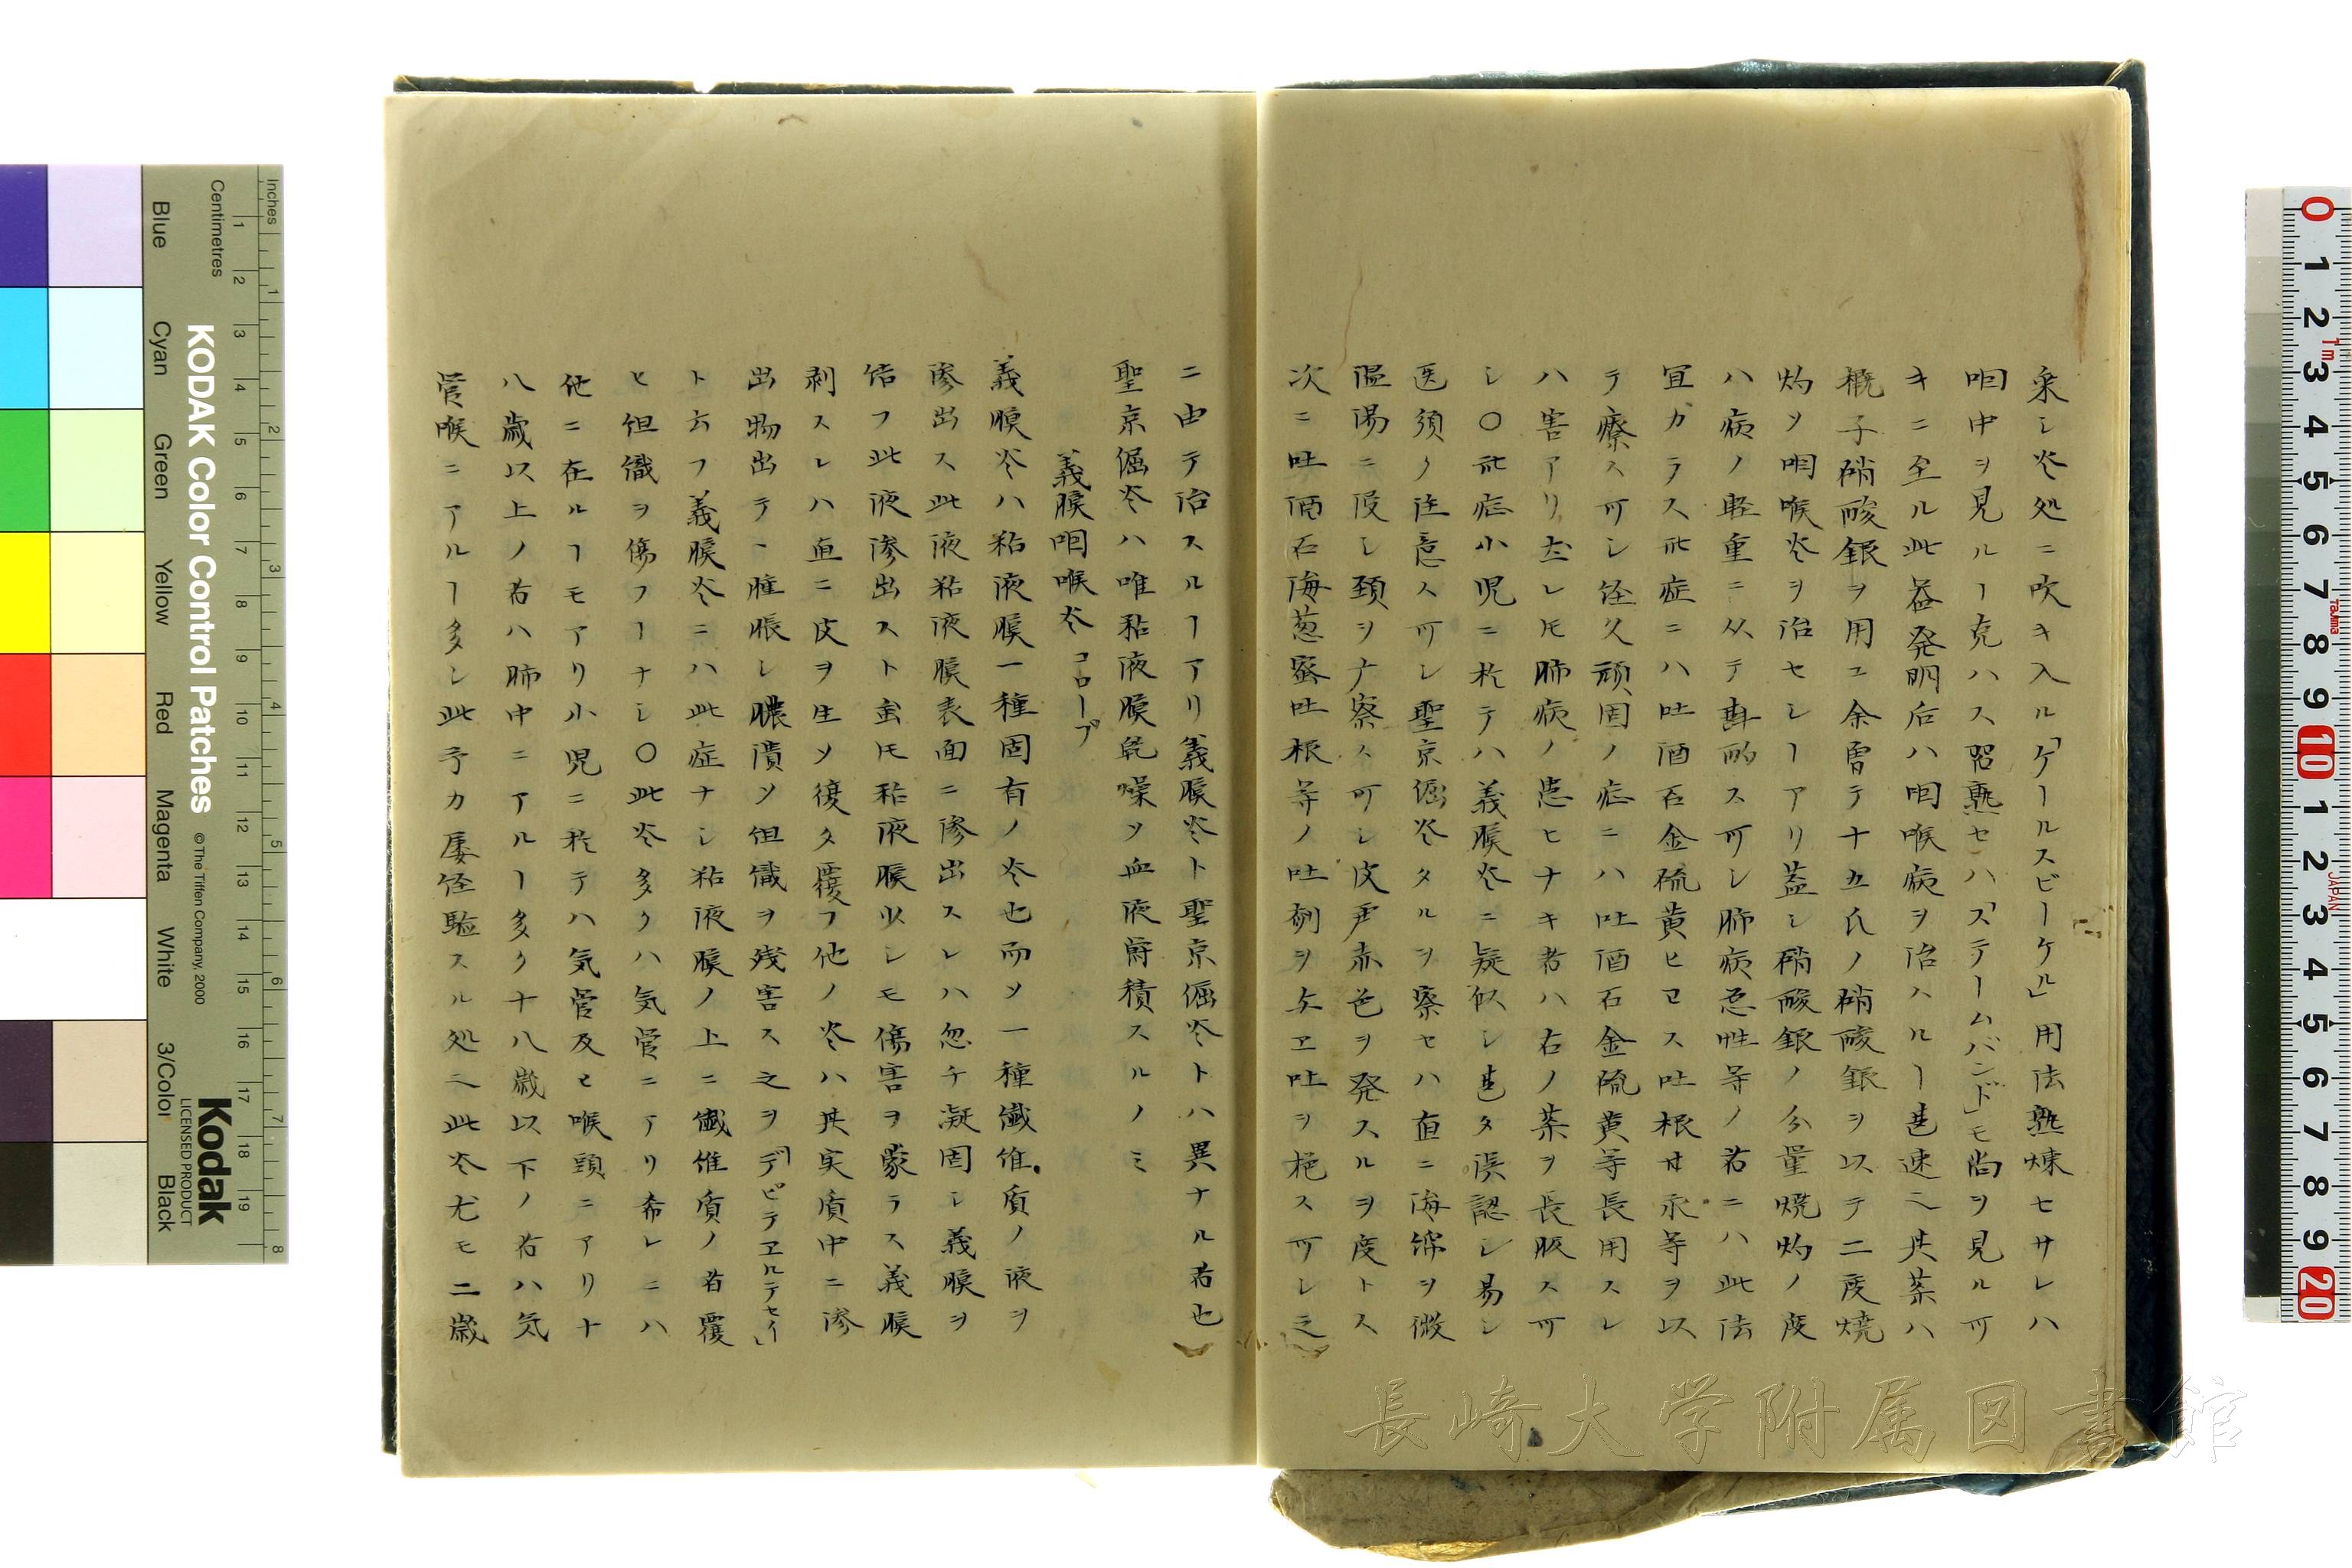 采シ炎処ニ吹キ入ル「ゲールスビーケル」用法熟煉セサレハ
咽中ヲ見ルヿ克ハス習熟セハ「ステームバンド」モ尚ヲ見ル可
キニ至ル此器発明后ハ咽喉病ヲ治ハルヿ甚速ニ〆其薬ハ
概子硝酸銀ヲ用ユ余曽テ十五氏ノ硝酸銀ヲ以テ二度焼
灼ヲ咽喉炎ヲ治セシヿアリ蓋シ硝酸銀ノ分量焼灼ノ度
ハ病ノ軽重ニ从テ斟酌ス可シ肺病悪性等ノ者ニハ此法
宜カラス此症ニハ吐酒石金硫黄ヒヨス吐根甘永等ヲ以
テ療ス可シ経久頑固ノ症ニハ吐酒石金硫黄等長用スレ
ハ害アリ然レ𪜈肺病ノ患ヒナキ者ハ右ノ薬ヲ長服ス可
シ〇此症小児ニ於テハ義膜炎ニ疑似シ甚タ誤認シ易シ
医須ク注意ス可シ聖京倔炎タルヲ察セハ直ニ海綿ヲ微
温湯ニ浸シ頚ヲナ察ス可シ皮尹赤色ヲ発スルヲ度トス
次ニ吐酒石海葱蜜吐根等ノ吐剤ヲ与ヱ吐ヲ耙ス可シ之
ニ由テ治スルヿアリ義膜炎ト聖京倔炎トハ異ナル者也
聖京倔炎ハ唯粘液膜乾燥ソ血液欝積スルノミ
義膜咽喉炎 コローブ
義膜炎ハ粘液膜一種固有ノ炎也而ソ一種繊維質ノ液ヲ
滲出ス此液粘液膜表面ニ滲出スレハ忽チ凝固シ義膜ヲ
結フ此液滲出スト𧈧𪜈粘液膜少シモ傷害ヲ蒙ラス義膜
剥スレハ直ニ皮ヲ生ソ復タ覆フ他ノ炎ハ其実質中ニ滲
出物出テヽ腫脹シ膿潰ソ組織ヲ残害ス之ヲ「デピテヱルテセイ」
ト云フ義膜炎ニハ此症ナシ粘液膜ノ上ニ繊維質ノ者覆
ヒ組織ヲ傷フヿナシ〇此炎多クハ気管ニアリ希レニハ
他ニ在ルヿモアリ小児ニ於テハ気管及ヒ喉頭ニアリナ
八歳以上ノ者ハ肺中ニアルヿ多ク十八歳以下ノ者ハ気
管喉ニアルヿ多シ此予カ屡経験スル処ニ〆此炎尤モ二歳